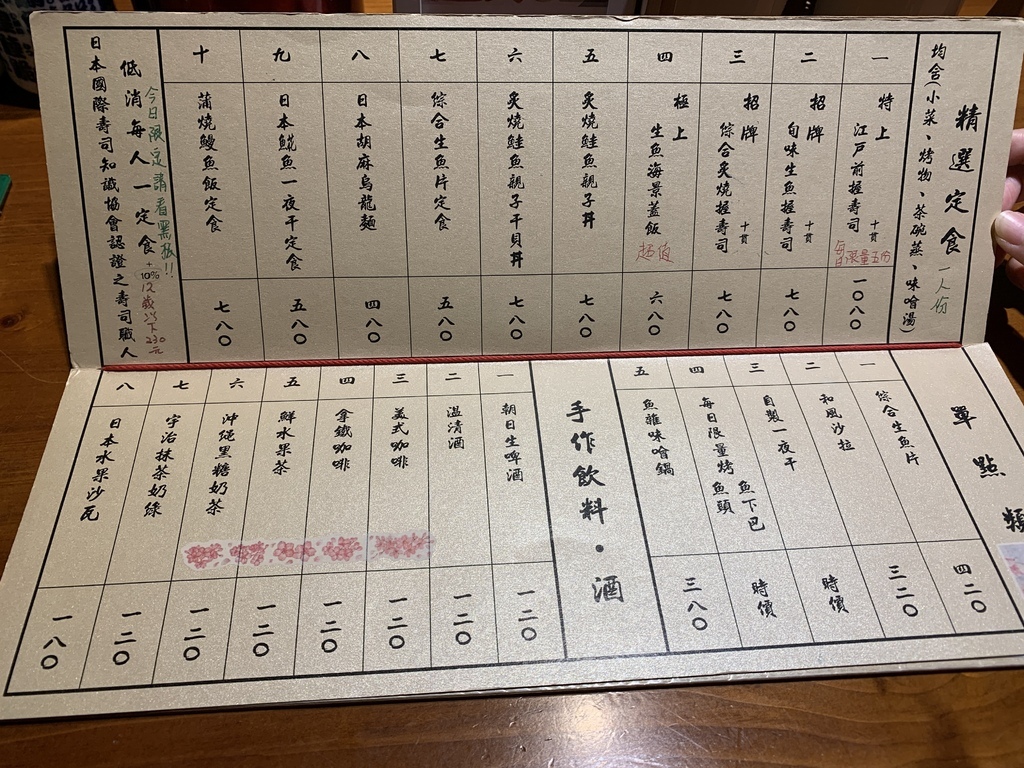 精選定食 一人份
均含(小菜、烤物、茶碗蒸、味噌湯)
一 特上 江戶前握壽司 十貫 每日限量五份 一〇八〇
二 招牌 旬味生魚握壽司 十貫 七八〇
三 招牌 綜合炙燒握壽司 十貫 七八〇
四 極上 生魚海景蓋飯 超值 六八〇
五 炙燒鮭魚親子丼 五八〇
六 炙燒鮭魚親子干貝丼 七八〇
七 綜合生魚片定食 五八〇
八 日本胡麻烏龍麵 四八〇
九 日本䱀魚一夜干定食 五八〇
十 蒲燒鰻魚飯定食 七八〇
今日限定請看黑板!!
低消每人一定食 +10% 12歲以下230元
日本國際壽司知識協會認證之壽司職人
單點類
一 綜合生魚片 四二〇
二 和風沙拉 三二〇
三 自製一夜干 時價
四 每日限量烤 魚下巴 魚頭 時價
五 魚雜味噌鍋 三八〇
手作飲料・酒
一 朝日生啤酒 一二〇
二 溫清酒 一二〇
三 美式咖啡 一二〇
四 拿鐵咖啡 一二〇
五 鮮水果茶 一二〇
六 沖繩黑糖奶茶 一二〇
七 宇治抹茶奶綠 一二〇
八 日本水果沙瓦 一八〇